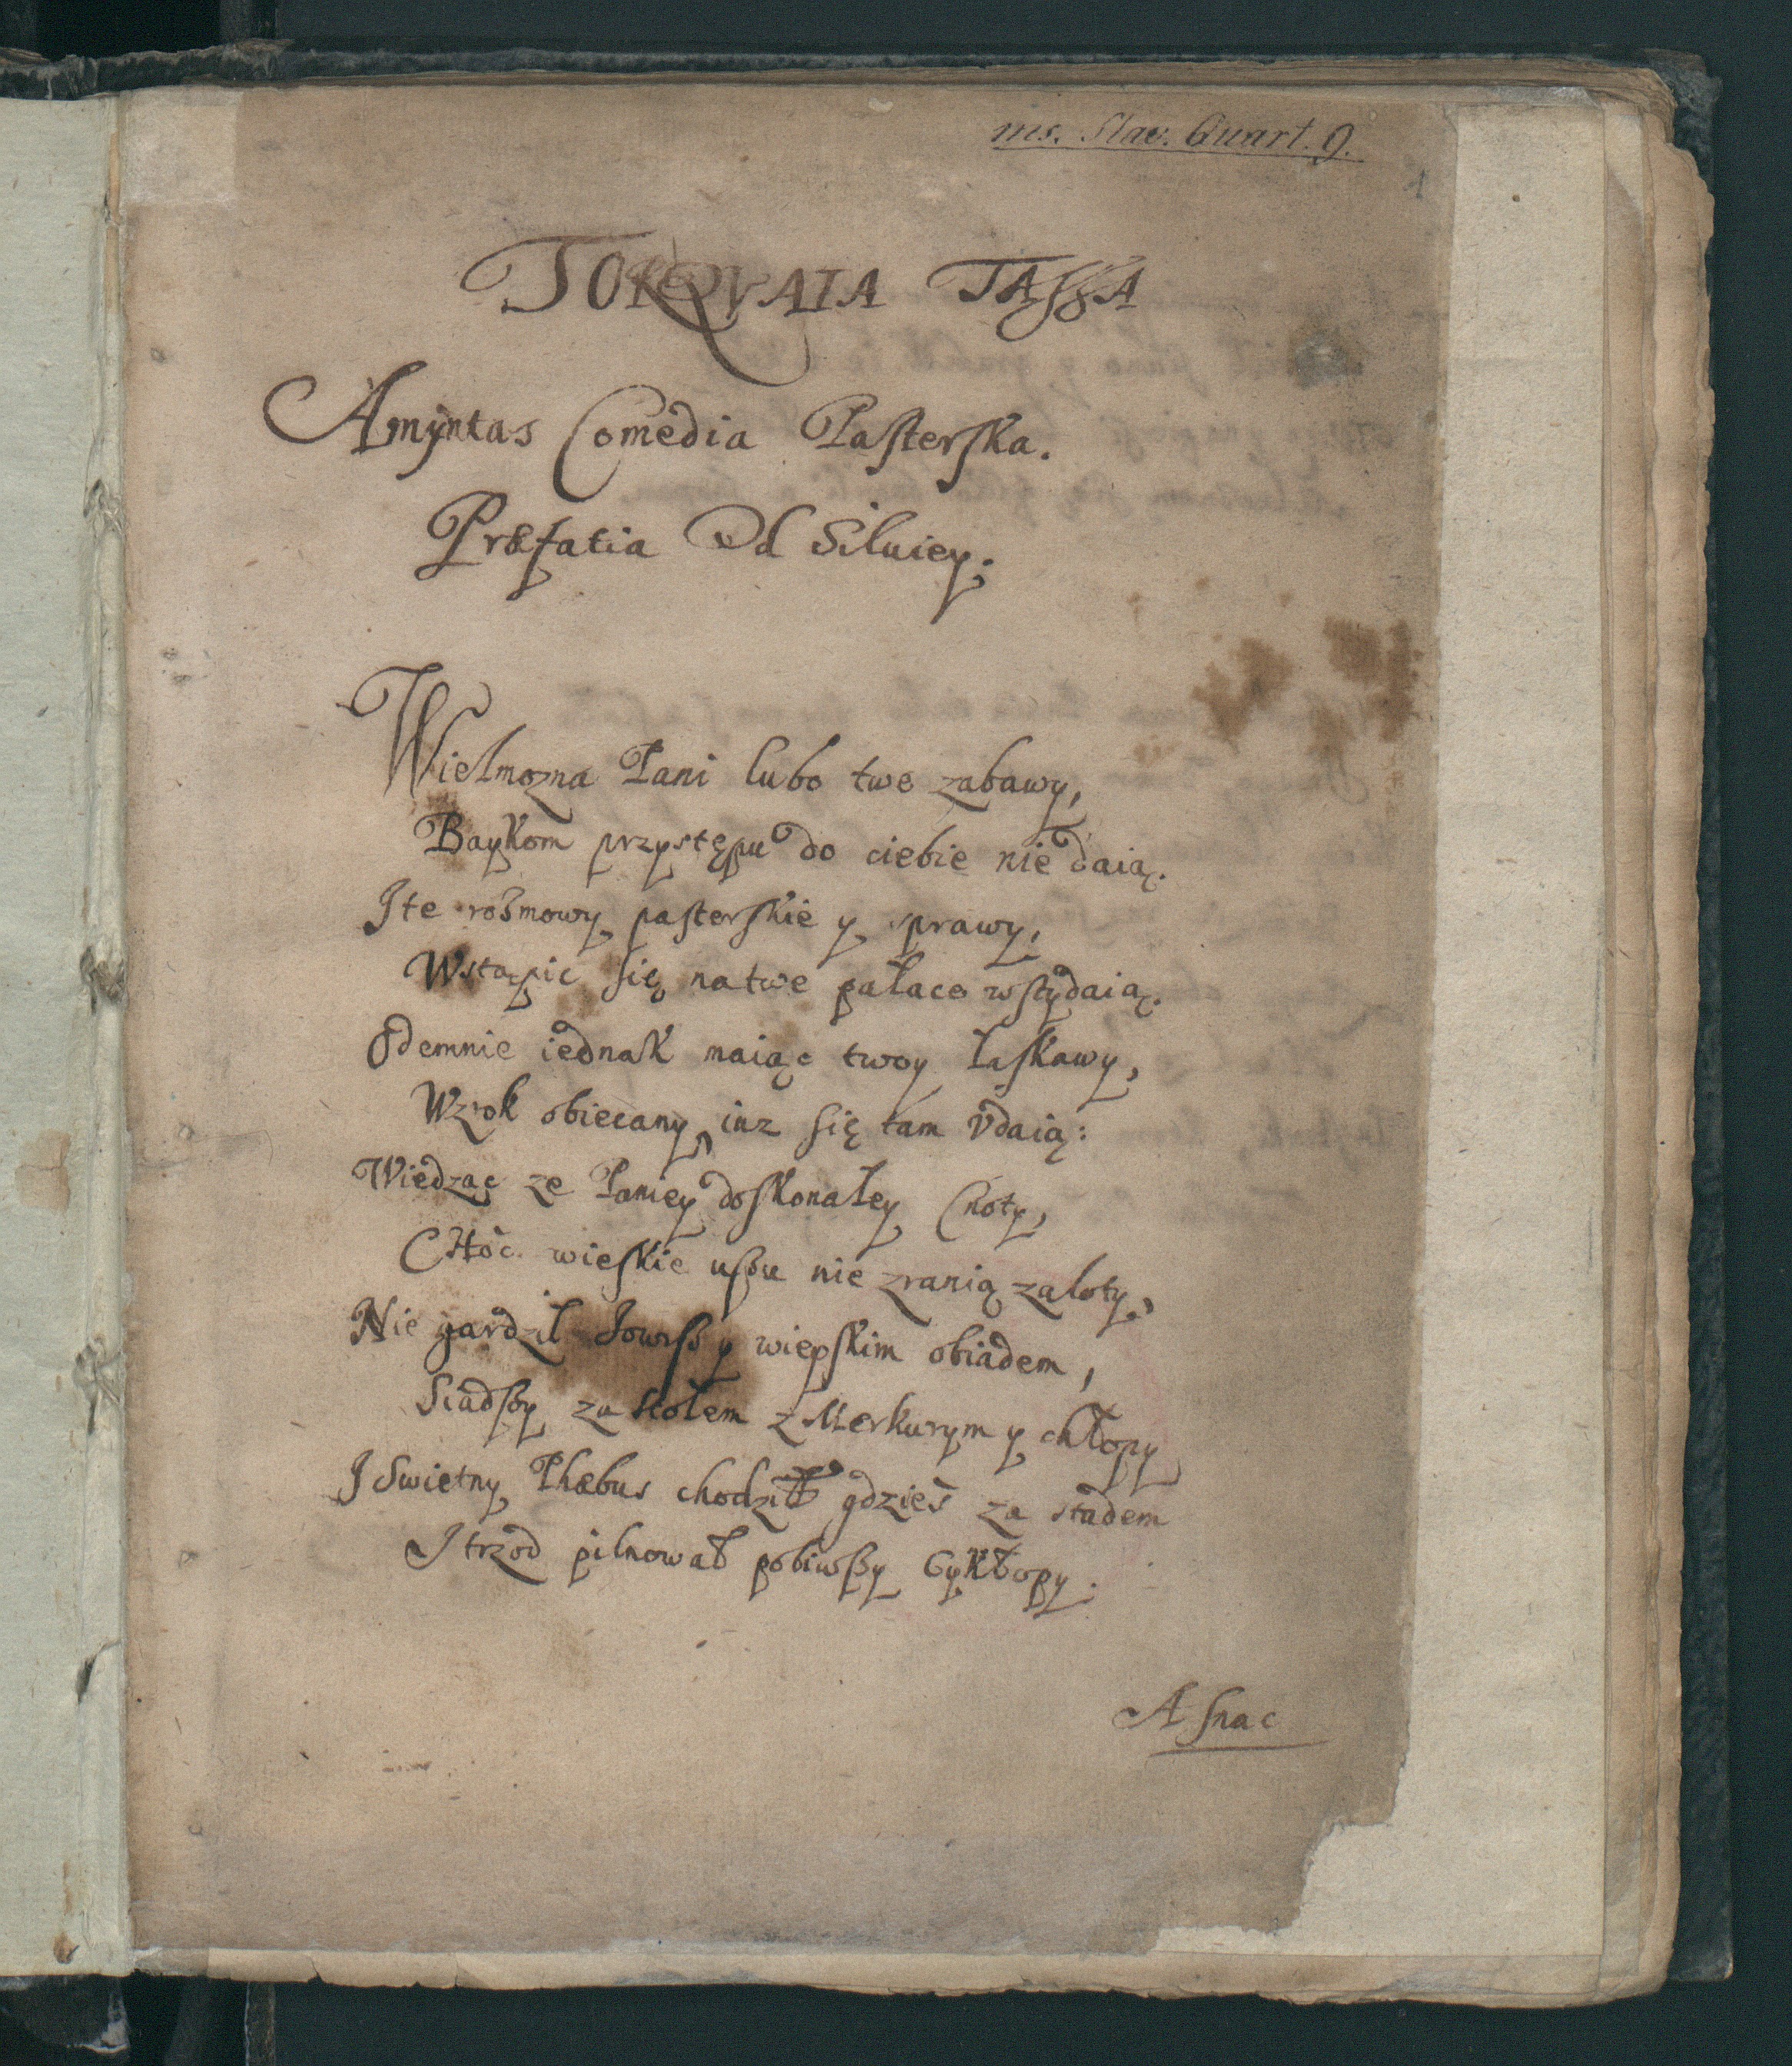 ms. Slav. Quart. 9.
1
TORQVATA TASSA
Amyntas Comedia Pasterska.
Præfatia Od Siluiey.
Wielmozna Pani lubo twe zabawy,
Baykom przystępu do ciebie nie daią.
I te rosmowy pasterskie y sprawy,
Wstąpic się na twe pałace wstydaią.
Odemnie iednak maiąc twoy łaskawy,
Wzrok obiecany iuz się tam Vdaią:
Wiedząc ze Paniey doskonałey Cnoty,
Choc wieskie uszu nie zranią zaloty,
Nie gardził Iowisz y wieyskim obiadem,
Siadszy za stołem z Merkurym y chłopy
I Swietny Phæbus chodził gdzieś za stadem
I trzod pilnował pobiwszy Cykłopy.
A snac